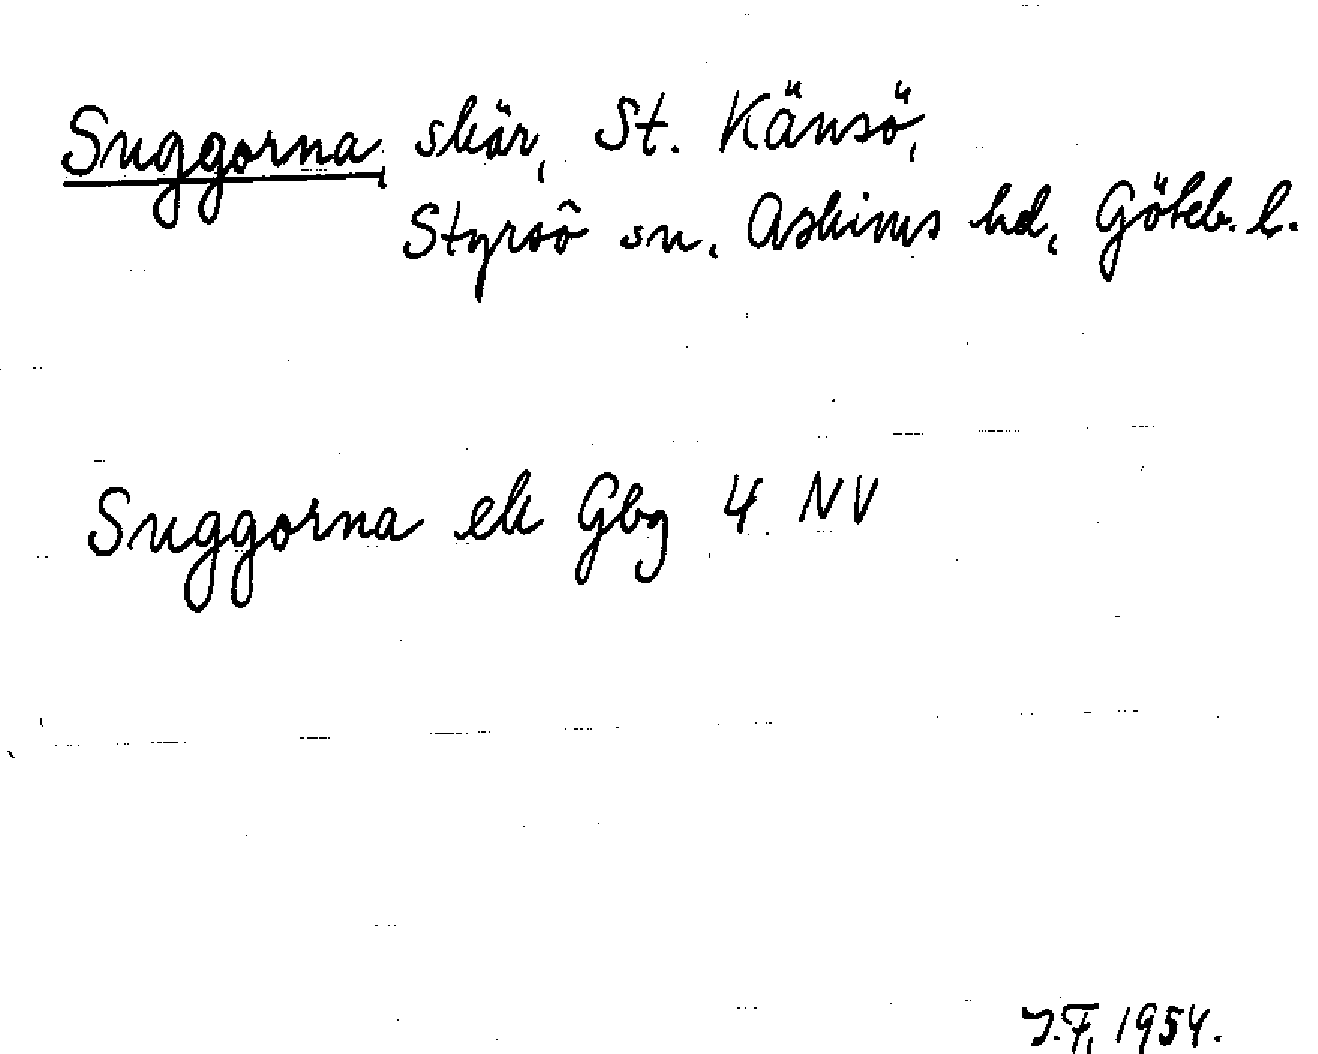 Suggorna, skär, St. Känsö,
Styrsö sn. Askims hd, Göteb. l.
Suggorna ek Gbg 4 NV
J.F, 1954.